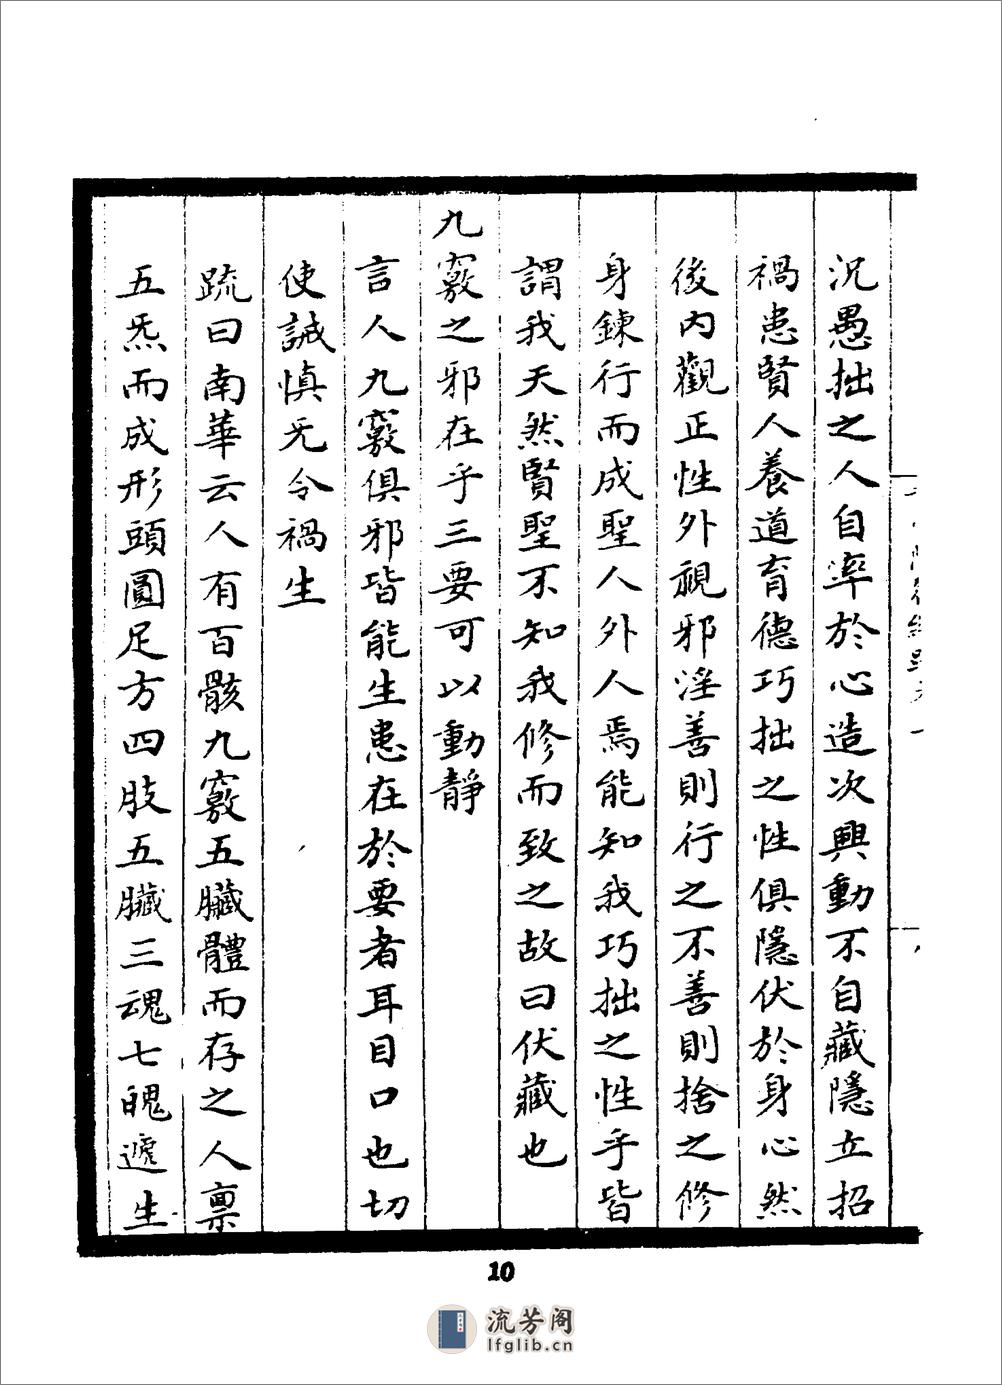 沉愚拙之人自率於心造次興動不自藏隱立招
禍患賢人養道育德巧拙之性俱隱伏於身心然
後內觀正性外視邪淫善則行之不善則捨之修
身鍊行而成聖人外人焉能知我巧拙之性乎皆
謂我天然賢聖不知我修而致之故曰伏藏也
九竅之邪在乎三要可以動靜
言人九竅俱邪皆能生患在於要者耳目口也切
使誡慎无令禍生
疏曰南華云人有百骸九竅五臟體而存之人禀
五炁而成形頭圓足方四肢五臟三魂七魄遞生
10
流芳阁
lfglib.cn